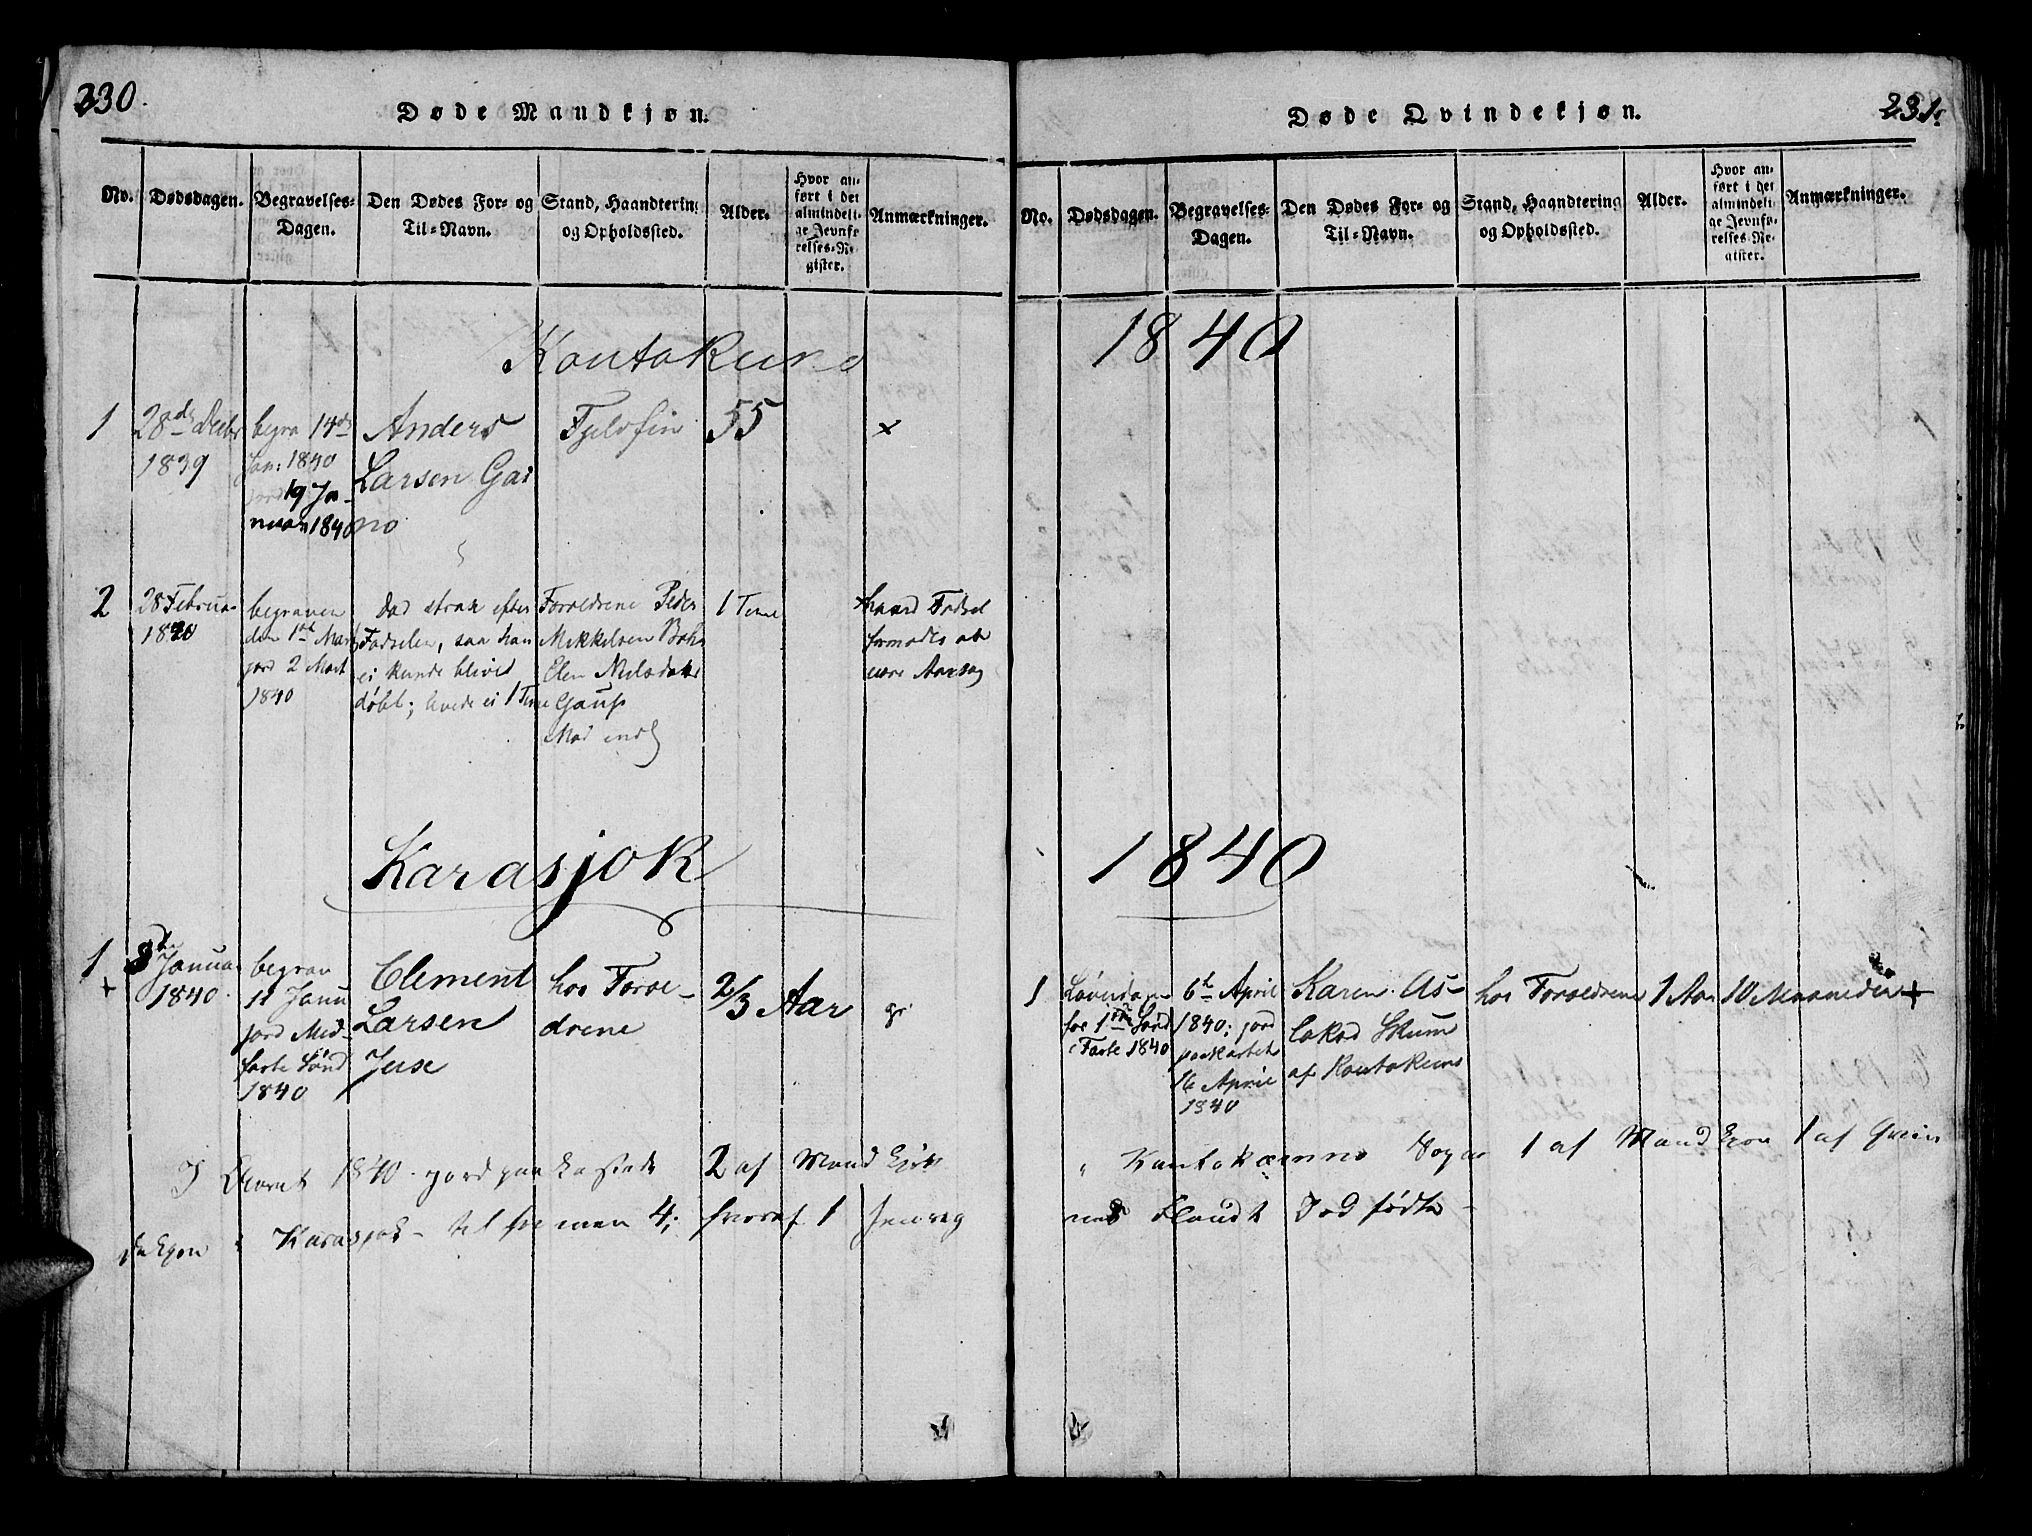 330.
Døde Mandkjøn.
No.
Dødsdagen.
Begravelses-
Dagen.
Den Dødes For- og
Til-Navn.
Stand, Haandtering
og Opholdssted.
Alder.
Hvor an-
ført i det
almindeli-
ge Jevnfø-
relses-Re-
gister.
Anmærkninger.
Kautokuno
1
28de Decbr
1839
begra 14de
Jan: 1840
jord 19 Ja-
nuar 1840
Anders
Larsen Gai
no
Fjelsfin
55
x
2
28 Februa-
1840
begraven
den 1ste Mart
jord 2 Mart
1840
Død strax efter
Fødselen, saa han
ei kunde blive
døbt; levede ei 1 Time
Forældrene Peder
Mikkelsen Bæhr
Elen Nilsdatter
Gaup
1 Time
haard Fødsel
formodes at
være Aarsag
Karasjok
1
+
8de Januar
1840.
begrav
11 Janu
jord Mid-
faste Sønd
1840
Clement
Larsen
Juse
hos Foræ-
drene
2/3 Aar
I Aaret 1840 jordpaakastede 2 af Mandkjøn
Karasjok - tilsammen 4; hvoraf 1
231.
Døde Qvindekjøn.
No.
Dødsdagen.
Begravelses-
Dagen.
Den Dødes For- og
Til-Navn.
Stand, Haandtering
og Opholdssted.
Alder.
Hvor an-
ført i det
almindeli-
ge Jevnfø-
relses-Re-
gister.
Anmærkninger.
1840
1840
1
Løverdagen
før 1ste Sønd
i Faste 1840
6te April
1840; jord
paakastet
16 April
1840
Karen As-
laksd Skum
af Kautokeino
hos Forældrene
1 Aar 10 Maaneder
+
i Kautokeino Sogn 1 af Mandkjøn 1 af Qvin
Dødfødte